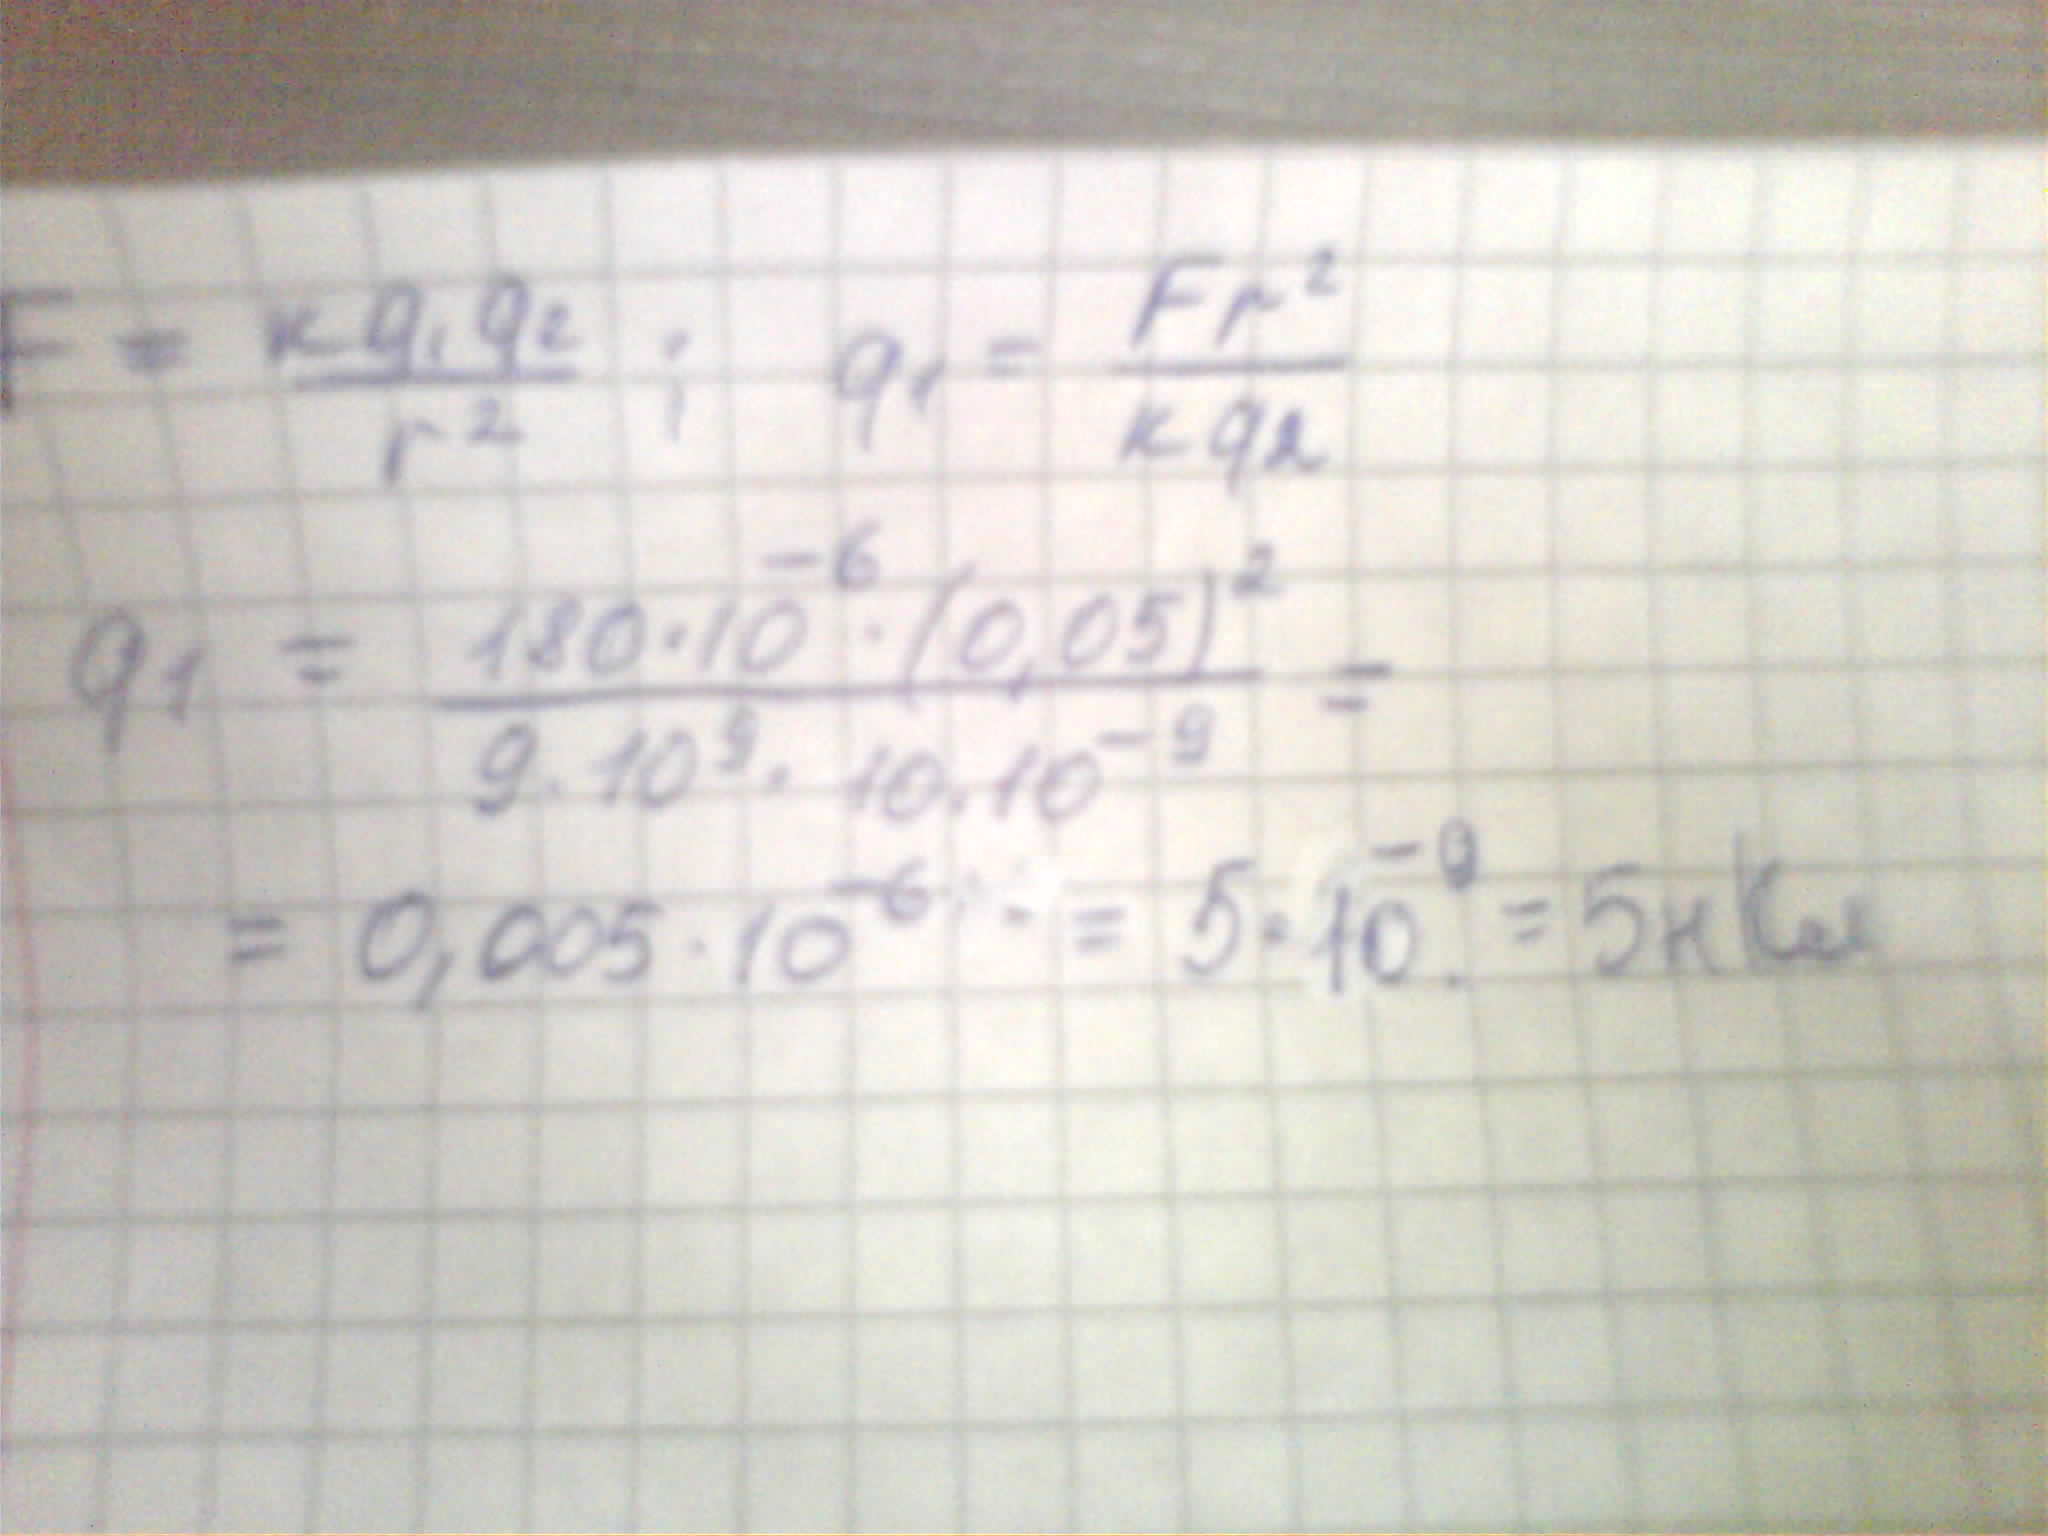 F = kq₁q₂/r² ; q₁ = Fr²/kq₂
q₁ = 180·10⁻⁶·(0,05)²/9·10⁹·10·10⁻⁹ =
= 0,005·10⁻⁶ = 5·10⁻⁹ = 5нКл